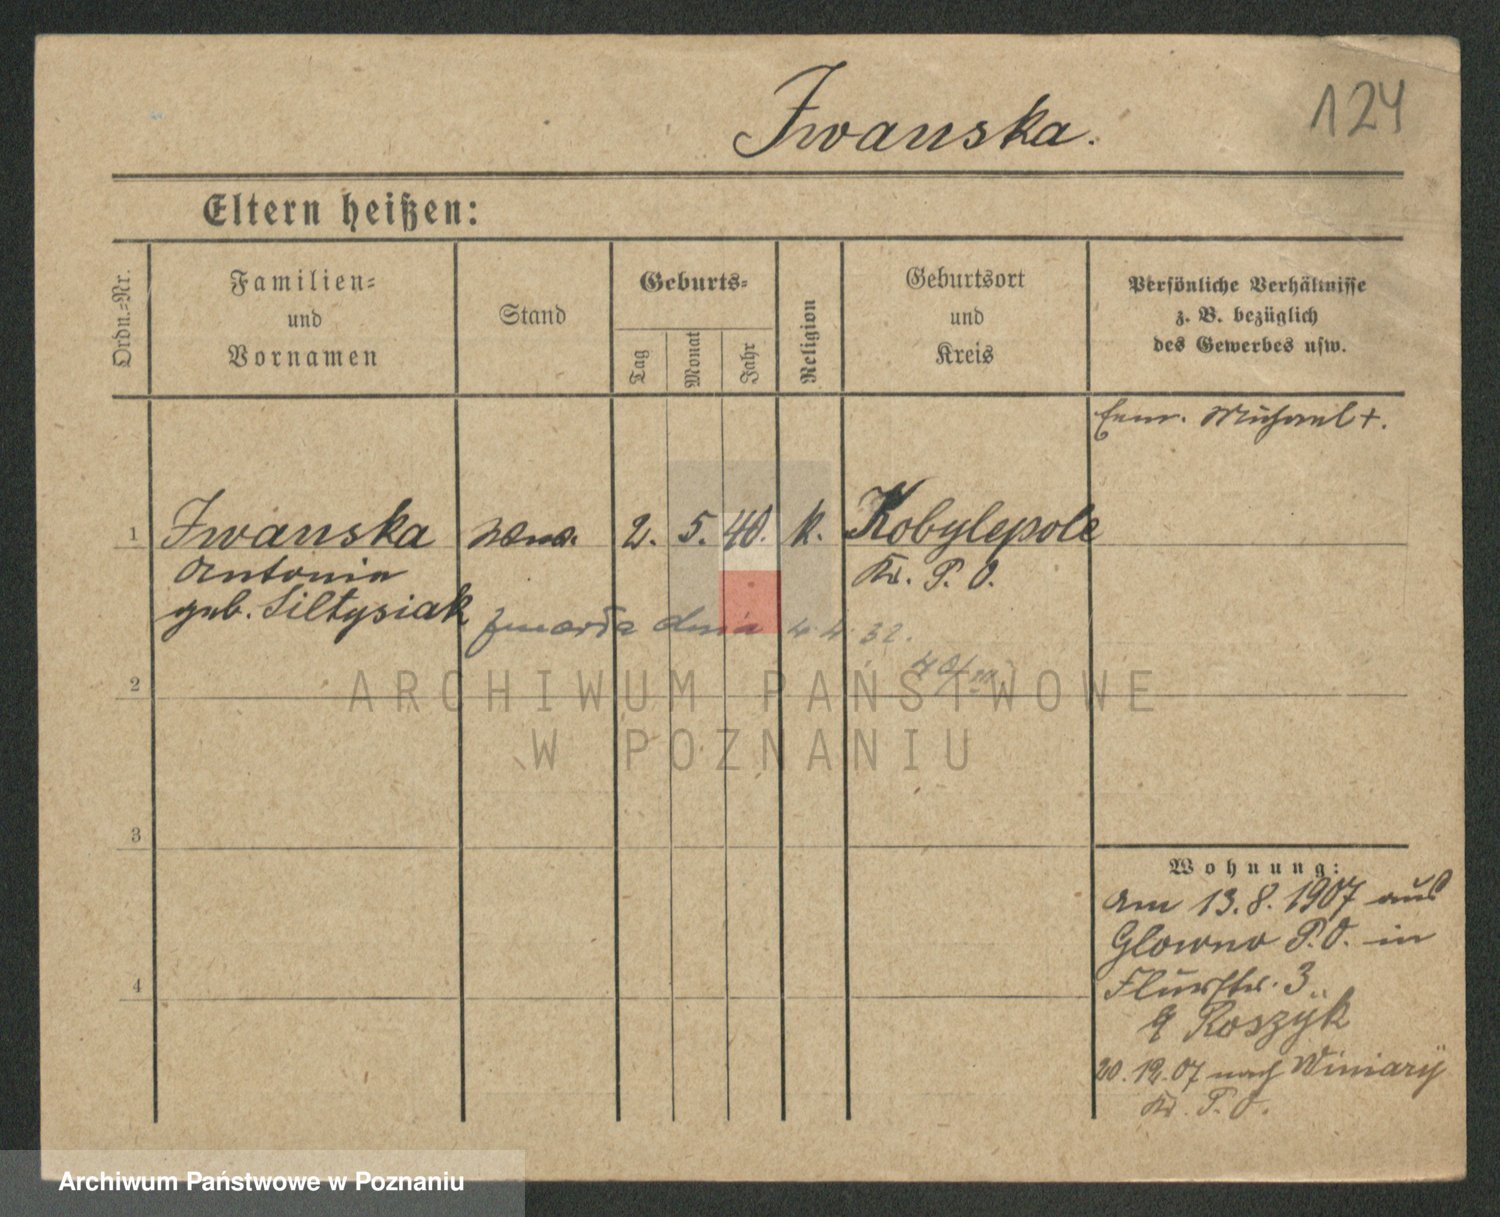 Iwanska.
124
Eltern heißen:
Ordn.=Nr.
Familien=
und
Vornamen
Stand
Geburts=
Tag
Monat
Jahr
Religion
Geburtsort
und
Kreis
Persönliche Verhältnisse
z. B. bezüglich
des Gewerbes usw.
Michael +.
1 Iwanska 2. 5. 40. k. Kobylepole
Antonie Kr. P. O.
geb. Siltysiak zmarła dnia 4. 4. 32.
2
3
4
Wohnung:
Am 13. 8. 1907 aus
Glowno P. O. in
Flurstr. 3
Roszÿk
20. 12. 07 nach Winiarÿ
Kr. P. O.
ARCHIWUM PAŃSTWOWE
W POZNANIU
Archiwum Państwowe w Poznaniu